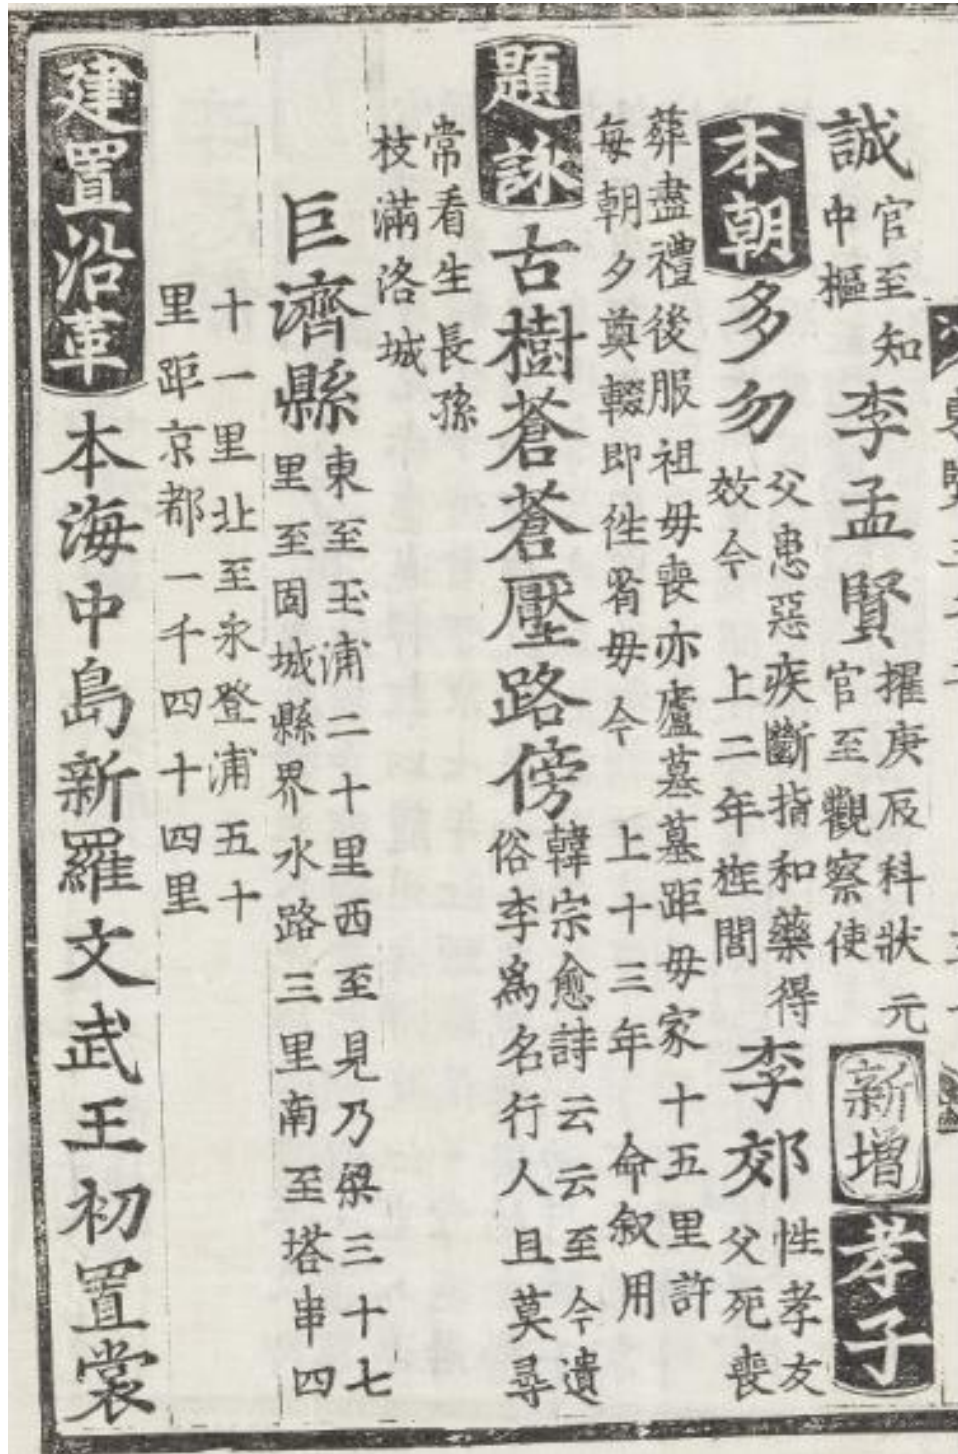 誠官至知中樞李孟賢擢庚辰科狀元官至觀察使新增孝子
本朝多勿父患惡疾斷指和藥得效今 上二年旌閭李郊性孝友父死喪
葬盡禮後服祖母喪亦廬墓墓距母家十五里許
每朝夕奠輟即徃省母今 上十三年 命叙用
題詠古樹蒼蒼壓路傍韓宗愈詩云云至今遺俗李爲名行人且莫尋
常看生長孫
枝滿洛城
巨濟縣東至玉浦二十里西至見乃梁三十七里至固城縣界水路三里南至塔串四
十一里北至永登浦五十
里距京都一千四十四里
建置沿革本海中島新羅文武王初置裳